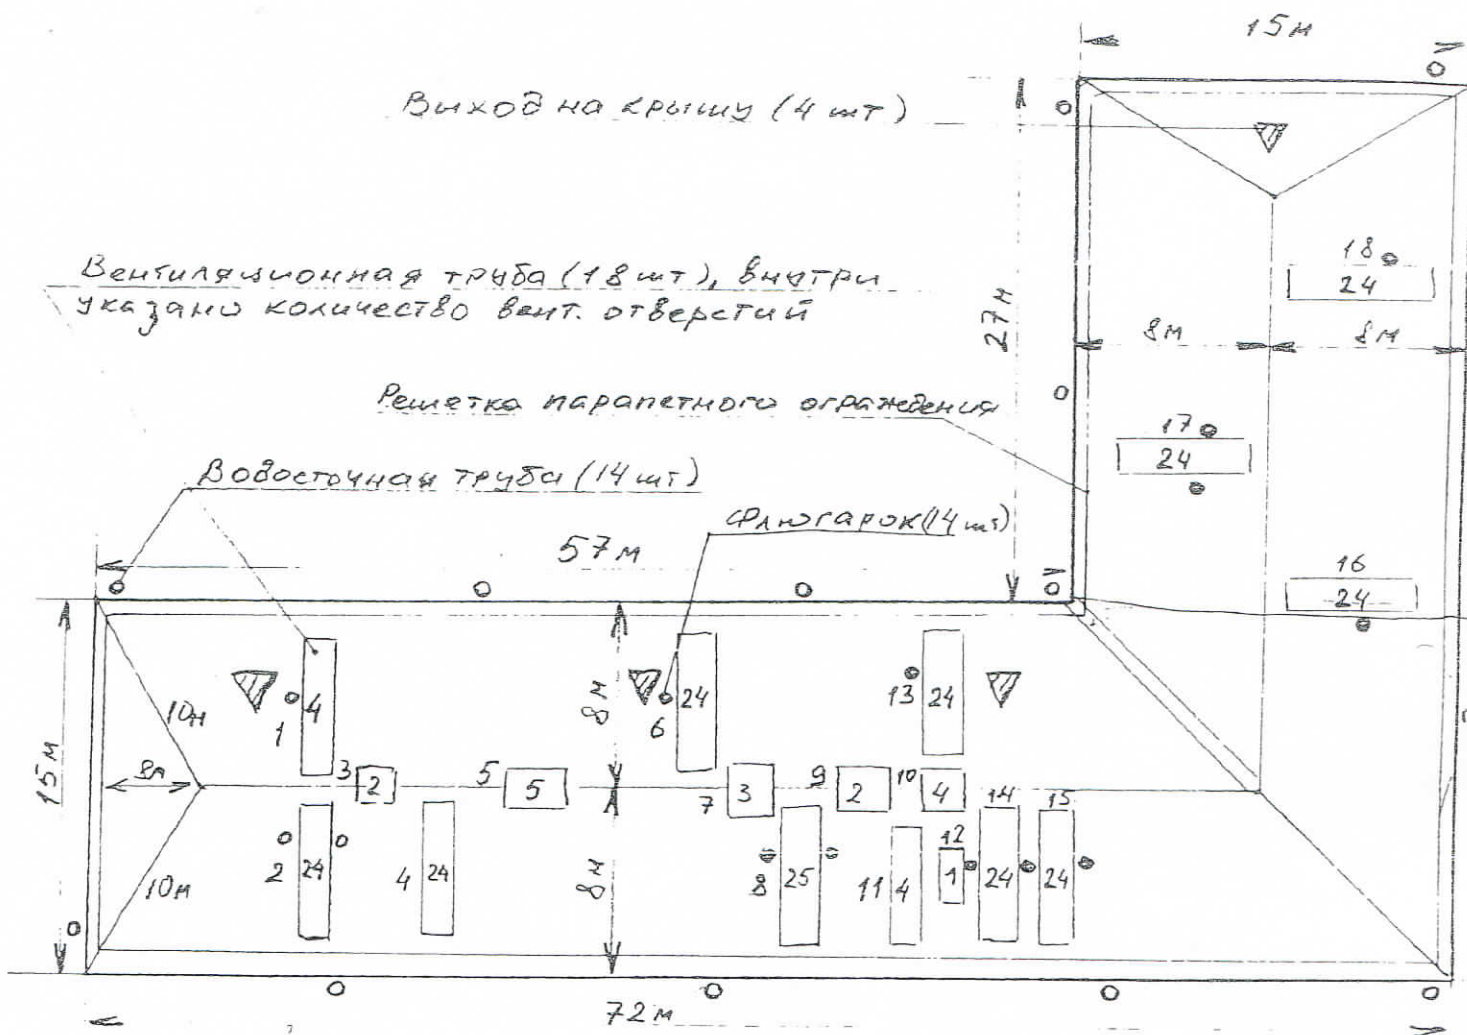 15м
Выход на крышу (4 шт)
Вентиляционная труба (18 шт), внутри
указано количество вент. отверстий
27м
18
24
8м
8м
Решетка парапетного ограждения
17
24
Водосточная труба (14 шт)
Флюгарок (14 шт)
57м
16
24
15м
10м
8м
10м
1
4
3
2
5
5
8м
6
24
13
24
7
3
9
2
10
4
14
15
2
24
4
24
8м
8
25
11
4
12
1
24
24
72м